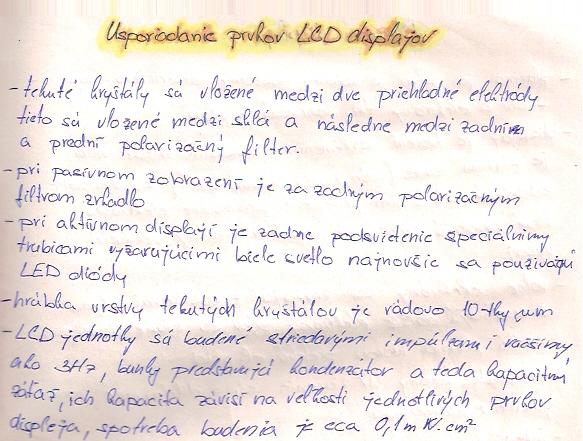 Usporiadanie prvkov LCD displajov
- tekuté kryštály sú vložené medzi dve priehľadné elektródy
tieto sú vložené medzi sklá a následne medzi zadním
a prední polarizačný filter.
- pri pasívnom zobrazení je za zadným polarizačným
filtrom zrkadlo
- pri aktívnom displayi je zadne podsvietenie speciálnimy
trubicami vyžarujúcimi biele svetlo najnovšie sa používajú
LED diódy
- hrúbka vrstvy tekutých kryštálov je rádovo 10-tky μm
- LCD jednotky sú budené striedavými impulzami väčšímy
ako 3Hz, bunky predstavujú kondenzátor a teda kapacitnú
záťaž, ich kapacita závisí na veľkosti jednotlivých prvkov
displeja, spotreba budenia je cca 0,1m W.cm²